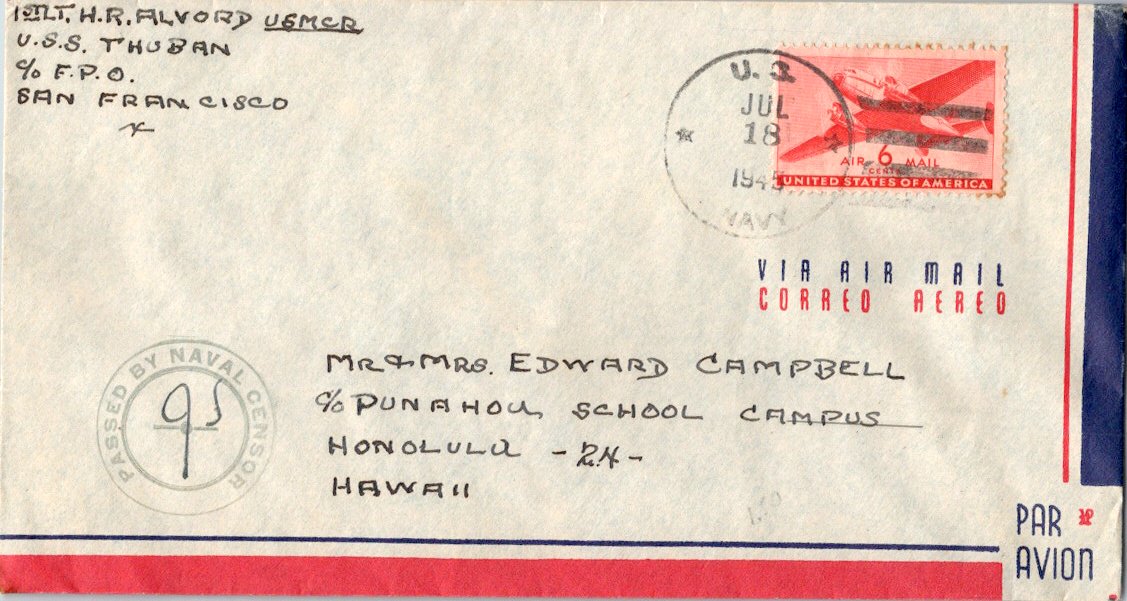 1STLT. H.R. ALVORD USMCR
U.S.S. THUBAN
c/o F.P.O.
SAN FRANCISCO
U.S.
JUL
18
1945
NAVY
AIR 6 MAIL
CENTS
UNITED STATES OF AMERICA
VIA AIR MAIL
CORREO AEREO
PASSED BY NAVAL CENSOR
MR & MRS. EDWARD CAMPBELL
c/o PUNAHOU SCHOOL CAMPUS
HONOLULU - 24 -
HAWAII
PAR
AVION